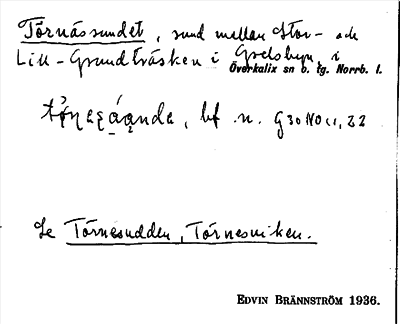 Törnässundet, sund mellan Stor- och
Lill-Grundträsken i Gyelsbyn, i
Överkalix sn o. tg. Norrb. l.
bf. n. G 30 NO c1, 22
Se Törnesudden, Törnesviken.
EDVIN BRÄNNSTRÖM 1936.